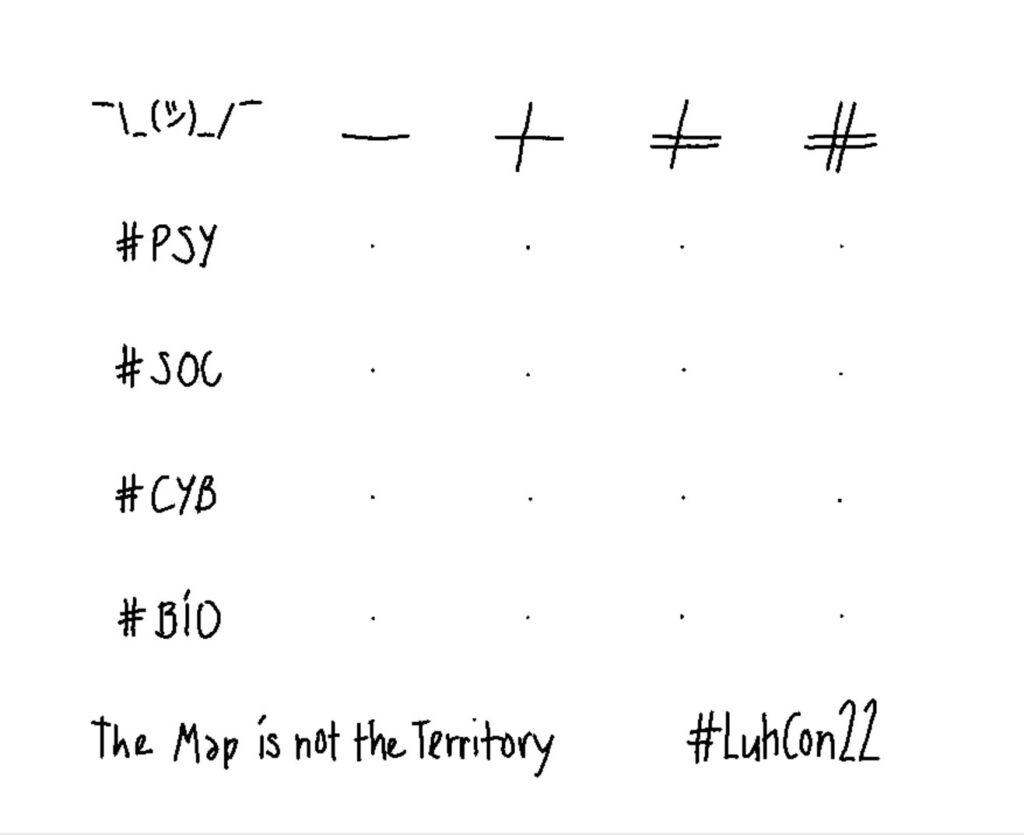 ¯\_(ツ)_/¯ — + ‡ #
#PSY . . . .
#SOC . . . .
#CYB . . . .
#BIO . . . .
The Map is not the Territory #LuhCon22